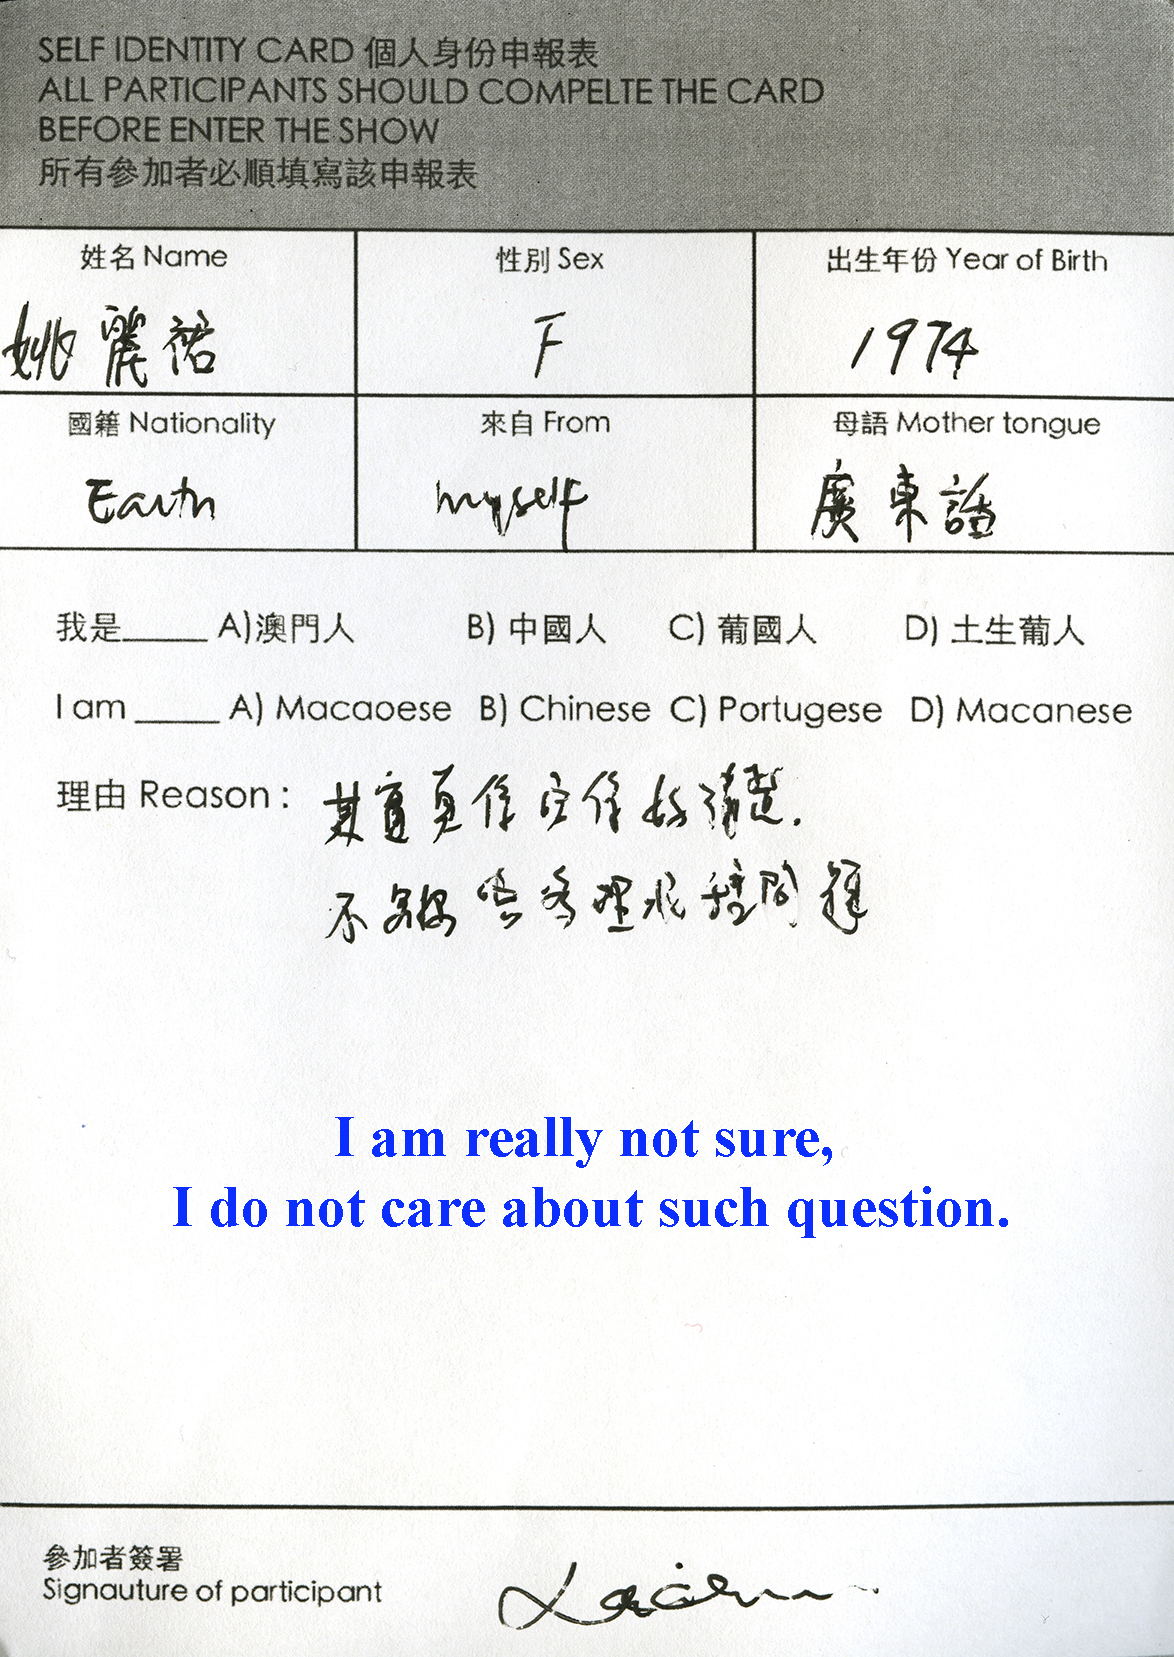 SELF IDENTITY CARD 個人身份申報表
ALL PARTICIPANTS SHOULD COMPELTE THE CARD
BEFORE ENTER THE SHOW
所有參加者必順填寫該申報表
姓名 Name
性別 Sex
出生年份 Year of Birth
姚麗
F
1974
國籍 Nationality
來自 From
母語 Mother tongue
Earth
myself
廣東話
我是_____ A)澳門人 B) 中國人 C) 葡國人 D) 土生葡人
I am _____ A) Macaoese B) Chinese C) Portugese D) Macanese
理由 Reason :
其實真係唔係好清楚.
不 理 種問題
I am really not sure,
I do not care about such question.
參加者簽署
Signauture of participant